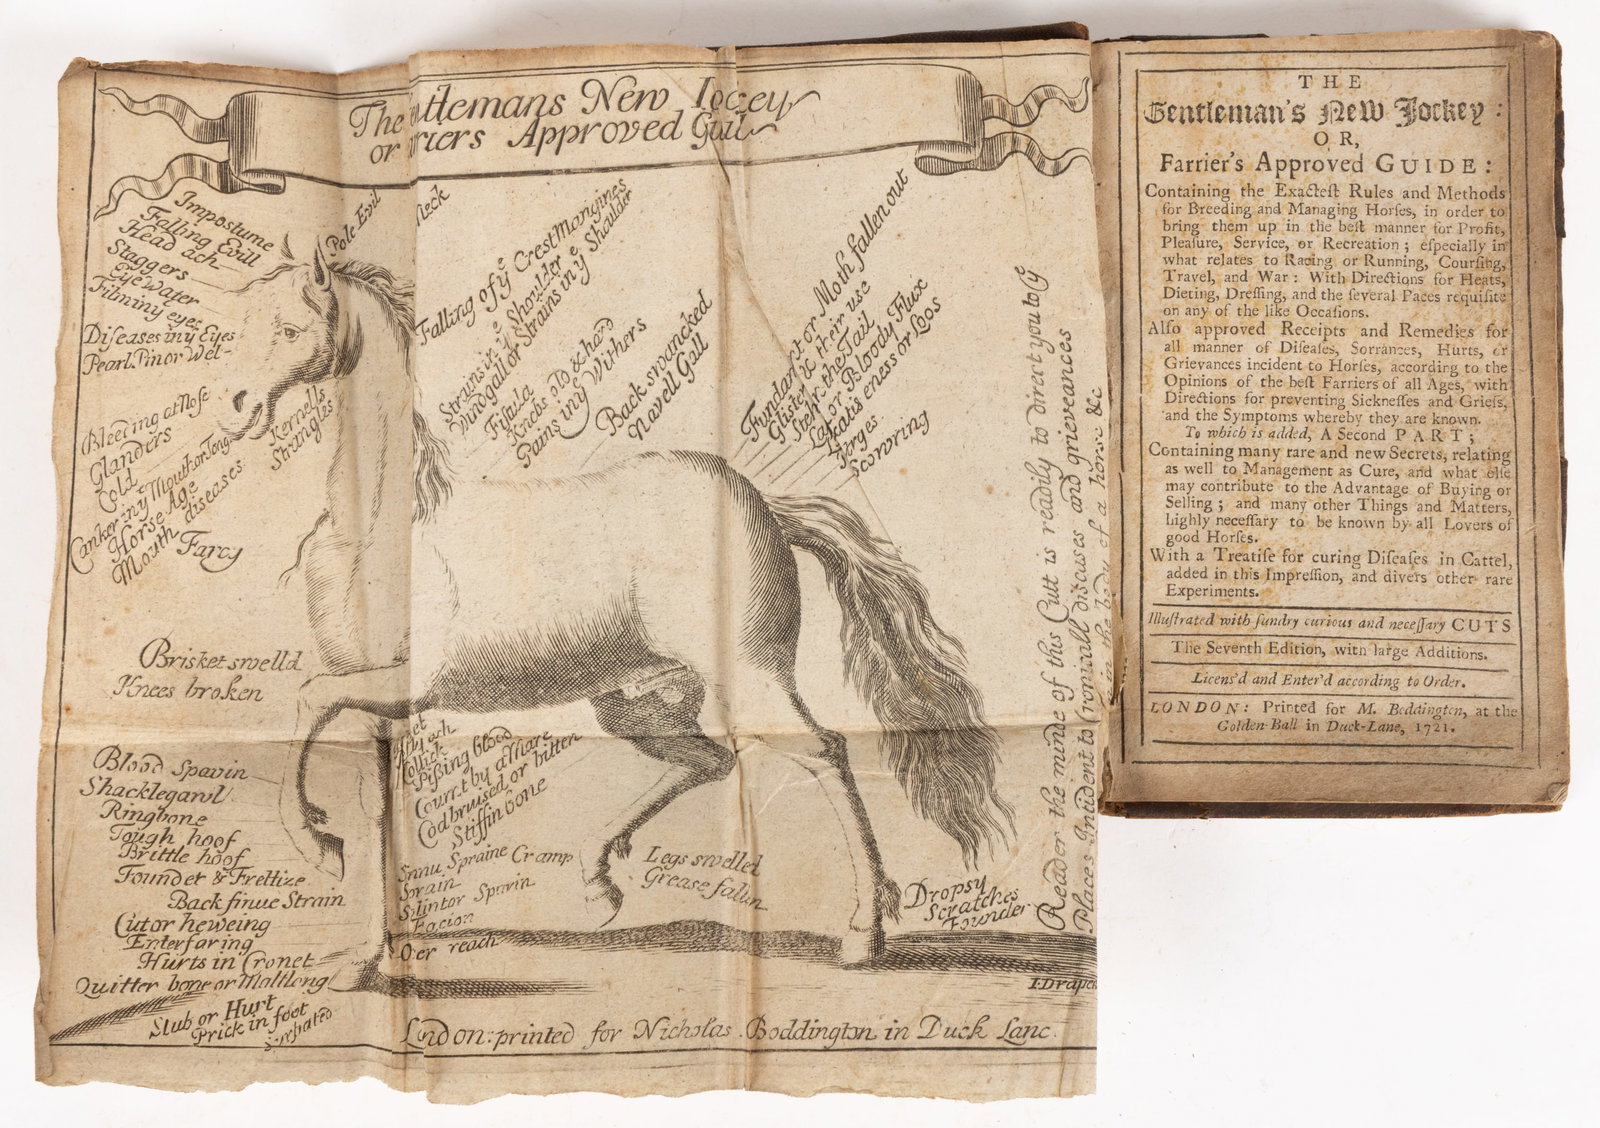 The Gentlemans New Iockey
or Farriers Approved Guid
Impostume
Falling Evill
Head ach
Staggers
Eye water
Film in yͤ eyes
Diseases in yͤ Eyes
Pearl Pin or Wel-
Pole Evil
Neck
Bleeding at Nose
Glanders
Cold
Canker in yͤ Mouth or Tong
Horse Age
Mouth diseases
Farcy
Kernells
Strangles
Falling of yͤ Crest Mangines
Strains in yͤ Shoulder
Windgall or Strains in yͤ Shoulder
Fistula
Knobs old & hard
Pains in yͤ Withers
Back swancked
Navell Gall
Fundament or Moth fallen out
Glisters & their use
the Tail
Lax or Bloody Flux
or Loos
Porges
Scowring
Brisket swelld
Knees broken
Blood Spavin
Shacklegawl
Ringbone
Tough hoof
Brittle hoof
Founder & Frettize
Back sinue Strain
Cut or heweing
Enterfaring
Hurts in Cronet
Quitter bone or Maltlong
Slub or Hurt
Prick in foot
Surbated
Collick
Pissing blood
Court by a Mare
Cod bruised or bitten
Stiffin bone
Sinnu Spraine Cramp
Sprain
Splint or Spavin
Over reach
Legs swelled
Grease fallin
Dropsy
Scratches
Founder
Reader the minde of this Cutt is readily to direct you to yͤ
Places Incident to Cronicall diseases and grieveances
in the body of a horse &c
I: Draper
London: printed for Nicholas Boddington in Duck Lane
THE
Gentleman's New Jockey:
OR,
Farrier's Approved GUIDE:
Containing the Exactest Rules and Methods
for Breeding and Managing Horſes, in order to
bring them up in the beſt manner for Profit,
Pleaſure, Service, or Recreation; eſpecially in
what relates to Racing or Running, Courſing,
Travel, and War: With Directions for Heats,
Dieting, Dreſſing, and the ſeveral Paces requiſite
on any of the like Occaſions.
Alſo approved Receipts and Remedies for
all manner of Diſeaſes, Sorrances, Hurts, or
Grievances incident to Horſes, according to the
Opinions of the beſt Farriers of all Ages, with
Directions for preventing Sickneſſes and Griefs,
and the Symptoms whereby they are known.
To which is added, A Second PART;
Containing many rare and new Secrets, relating
as well to Management as Cure, and what elſe
may contribute to the Advantage of Buying or
Selling; and many other Things and Matters,
highly neceſſary to be known by all Lovers of
good Horſes.
With a Treatiſe for curing Diſeaſes in Cattel,
added in this Impreſſion, and divers other rare
Experiments.
Illuſtrated with ſundry curious and neceſſary CUTS
The Seventh Edition, with large Additions.
Licens'd and Enter'd according to Order.
LONDON: Printed for M. Boddington, at the
Golden-Ball in Duck-Lane, 1721.